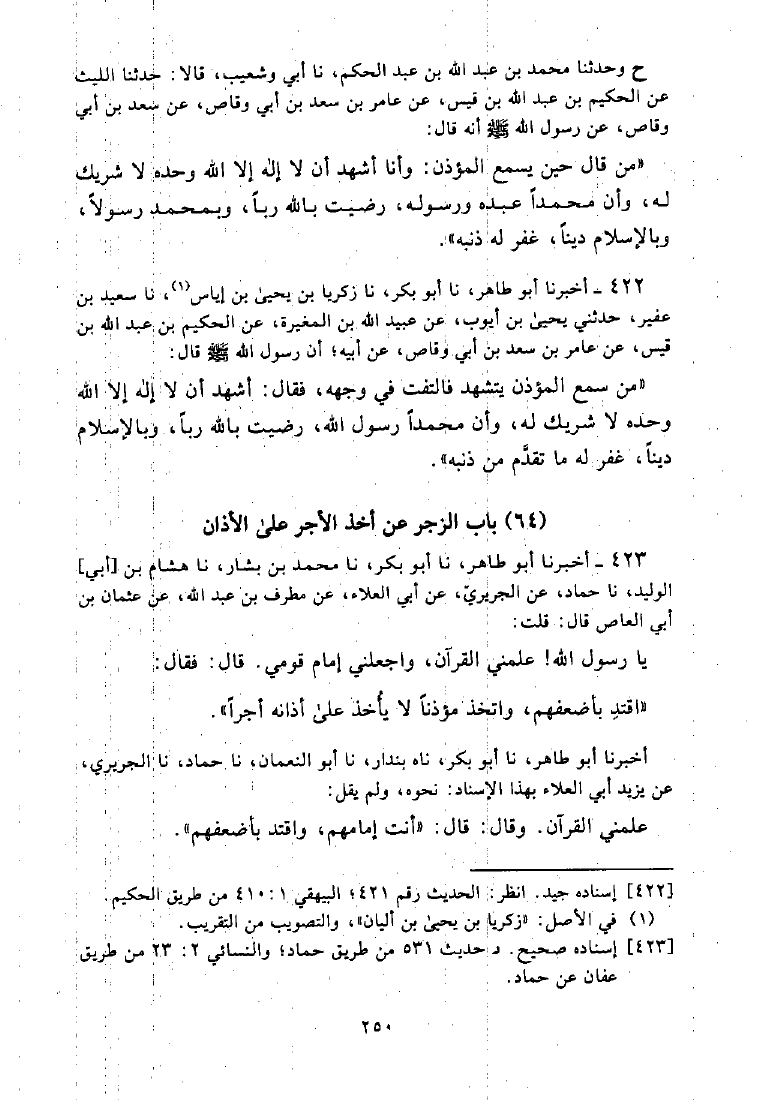 ح وحدثنا محمد بن عبد الله بن عبد الحكم، نا أبي وشعيب، قالا: حدثنا الليث
عن الحكيم بن عبد الله بن قيس، عن عامر بن سعد بن أبي وقاص، عن سعد بن أبي
وقاص، عن رسول الله ﷺ أنه قال:
«من قال حين يسمع المؤذن: وأنا أشهد أن لا إلٰه إلا الله وحده لا شريك
له، وأن محمداً عبده ورسوله، رضيت بالله رباً، وبمحمد رسولاً،
وبالإسلام ديناً، غفر له ذنبه».
٤٢٢ ـ أخبرنا أبو طاهر، نا أبو بكر، نا زكريا بن يحيىٰ بن إياس(١)، نا سعيد بن
عفير، حدثني يحيىٰ بن أيوب، عن عبيد الله بن المغيرة، عن الحكيم بن عبد الله بن
قيس، عن عامر بن سعد بن أبي وقاص، عن أبيه؛ أن رسول الله ﷺ قال:
«من سمع المؤذن يتشهد فالتفت في وجهه، فقال: أشهد أن لا إلٰه إلا الله
وحده لا شريك له، وأن محمداً رسول الله، رضيت بالله رباً، وبالإسلام
ديناً، غفر له ما تقدَّم من ذنبه».
(٦٤) باب الزجر عن أخذ الأجر علىٰ الأذان
٤٢٣ ـ أخبرنا أبو طاهر، نا أبو بكر، نا محمد بن بشار، نا هشام بن [أبي]
الوليد، نا حماد، عن الجريريّ، عن أبي العلاء، عن مطرف بن عبد الله، عن عثمان بن
أبي العاص قال: قلت:
يا رسول الله! علمني القرآن، واجعلني إمام قومي. قال: فقال:
«اقتدِ بأضعفهم، واتخذ مؤذناً لا يأُخذ علىٰ أذانه أجراً».
أخبرنا أبو طاهر، نا أبو بكر، ناه بندار، نا أبو النعمان، نا حماد، نا الجريري،
عن يزيد أبي العلاء بهذا الإسناد: نحوه، ولم يقل:
علمني القرآن. وقال: قال: «أنت إمامهم، واقتد بأضعفهم».
[٤٢٢] إسناده جيد. انظر: الحديث رقم ٤٢١؛ البيهقي ١: ٤١٠ من طريق الحكيم.
(١) في الأصل: «زكريا بن يحيىٰ بن أليان»، والتصويب من التقريب.
[٤٢٣] إسناده صحيح. د حديث ٥٣١ من طريق حماد؛ والنسائي ٢: ٢٣ من طريق
عفان عن حماد.
٢٥٠